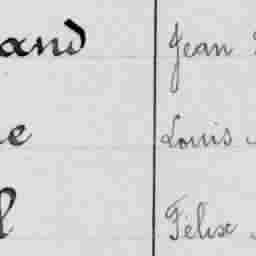 and Jean
e Louis
l Félix